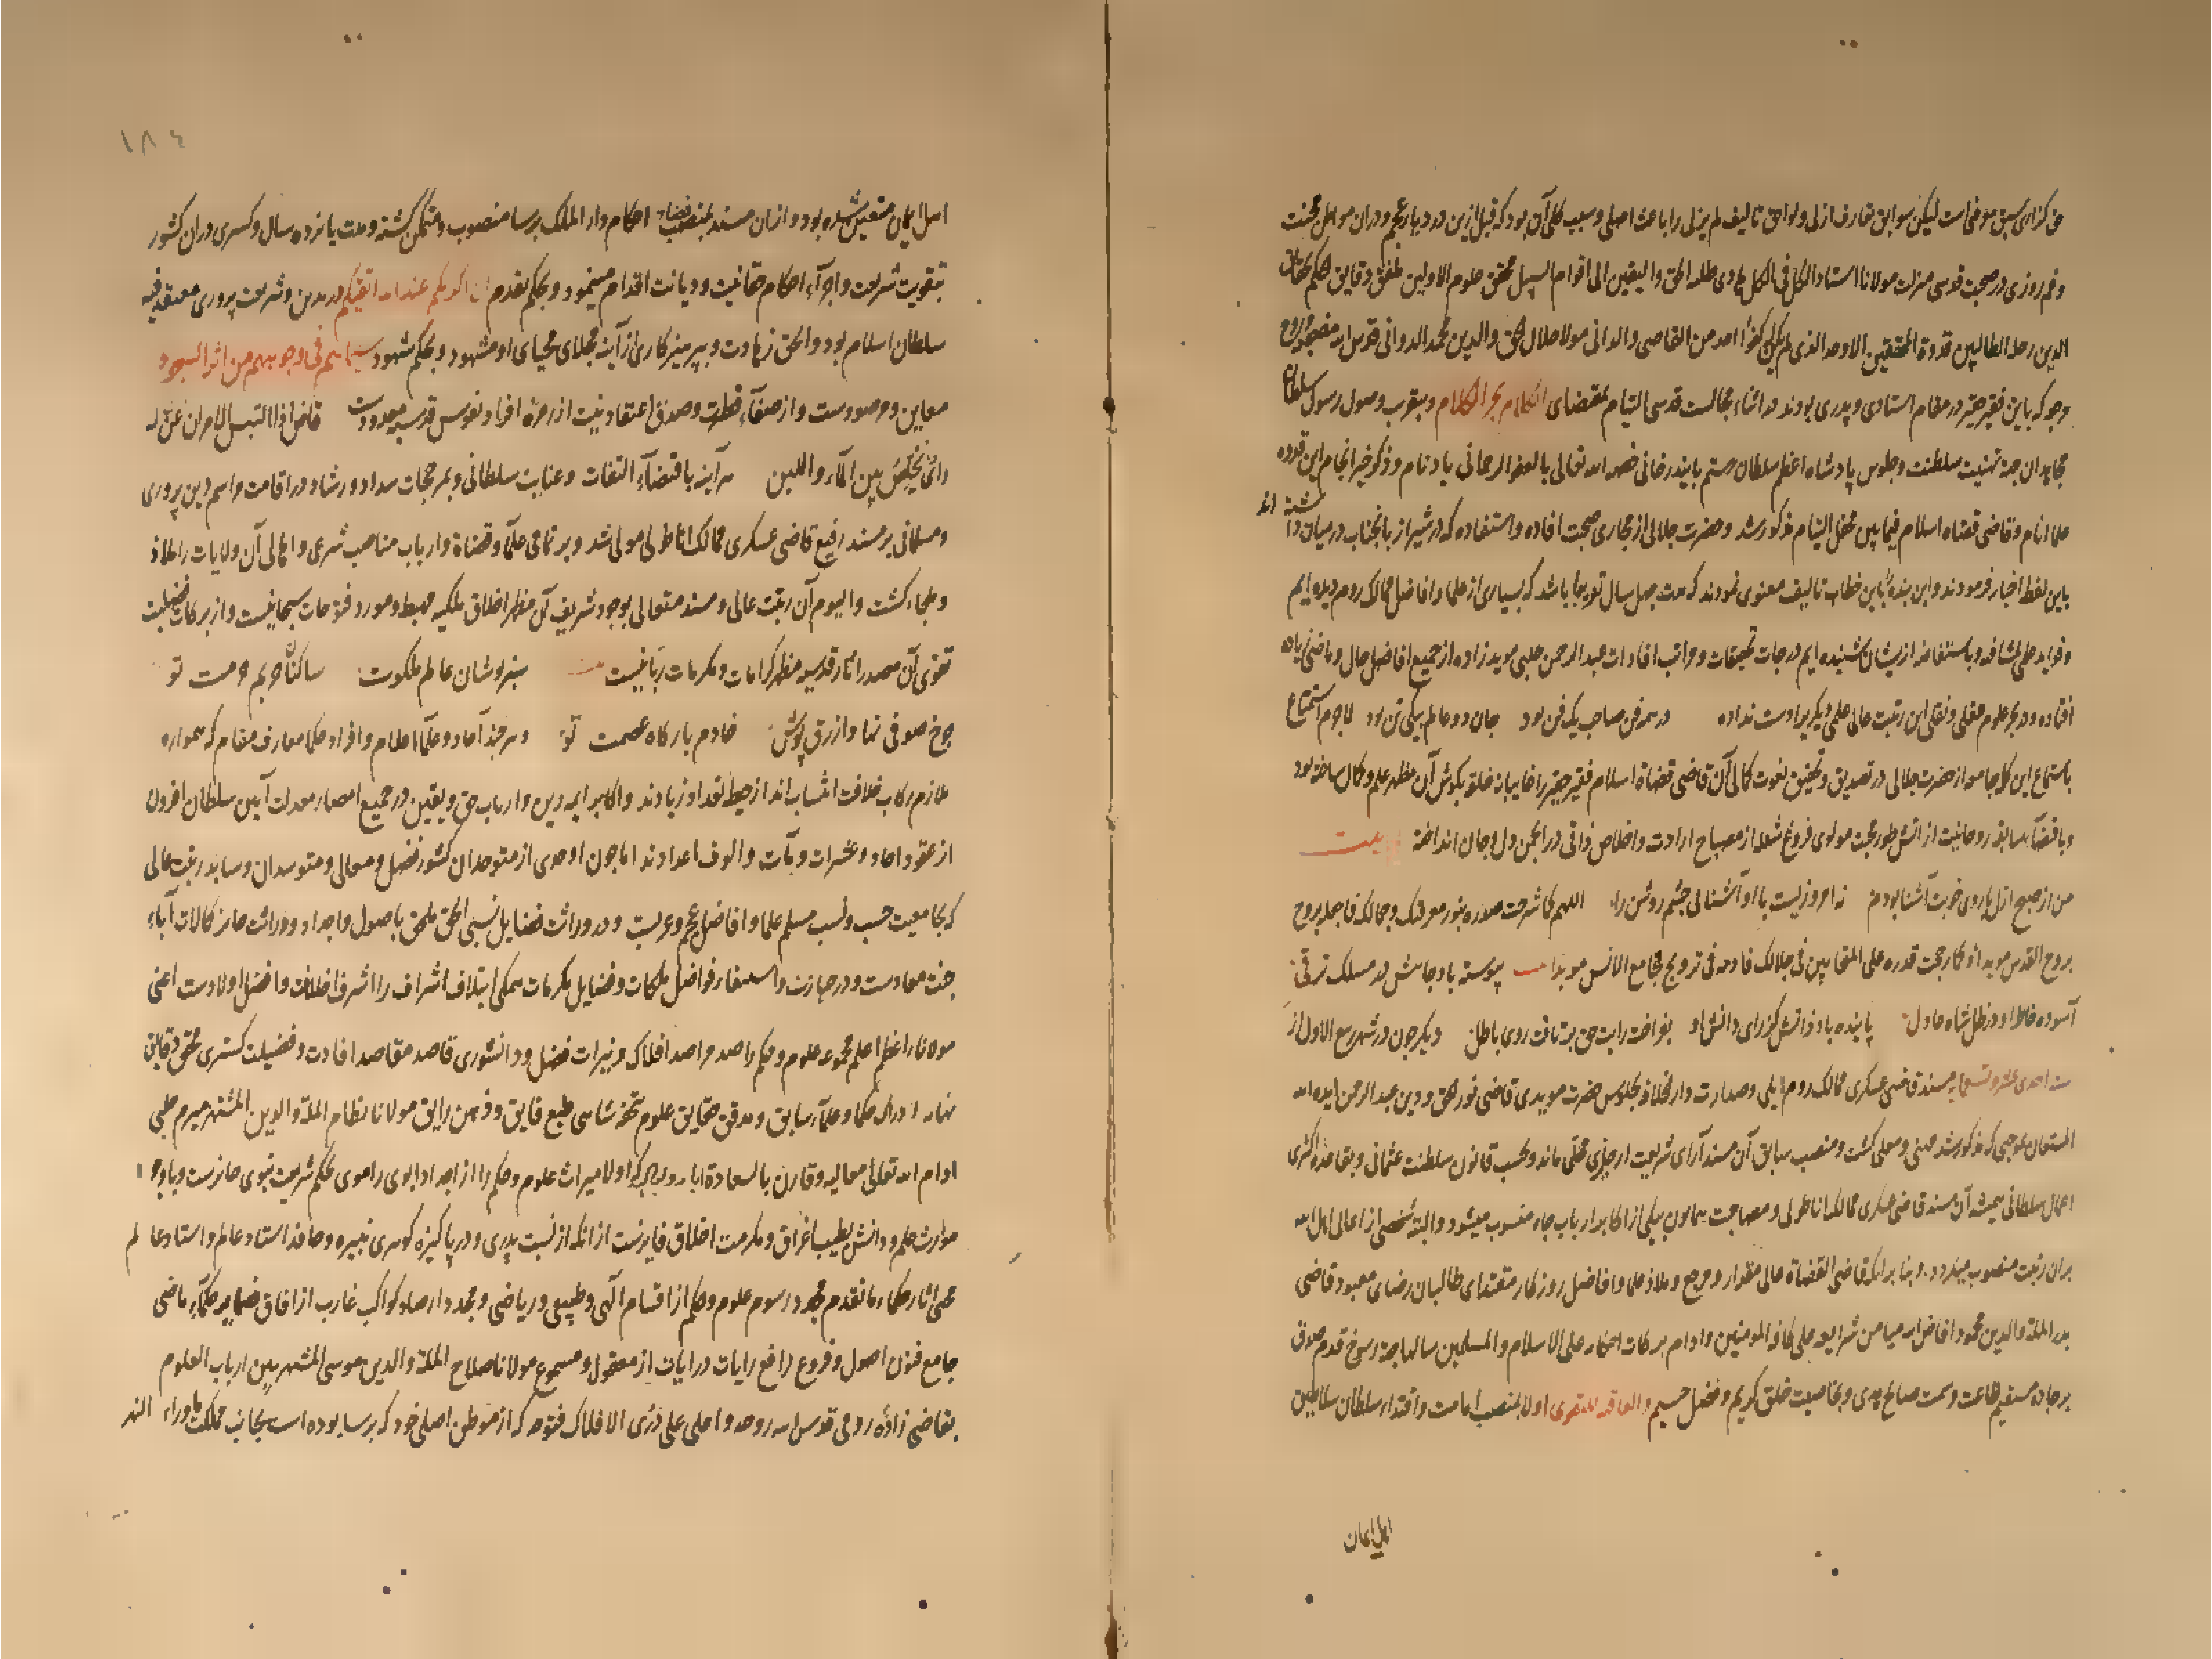 حق گزاری سبق موفی است لیکن سوابق تعارف ازلی و لواحق تالیف لم یزلی را باعث اصلی و سبب کلی آن بود که قبل ازین در دیار عجم و دران مراحل محنت
و غم روزی در صحبت قدسی منزلت مولانا استاد الکل فی الکل هادی طلبه الحق و الیقین الی اقوام السبیل محقق علوم الاولین
الدین رحله الطالبین قدوة المحققین الاوحد الذی لم یکن له کفوا احد من القاصی و الدانی مولانا جلال الحق و الدین محمد الدوانی قدس الله
وجه که باین فقیر حقیر در مقام استادی و پدری بودند در اثناء مجالست قدسی التیام بمقتضای الکلام یجر الکلام و بتقریب وصول رسول سلطان
مجاهدان جهة تهنیت سلطنت و جلوس پادشاه اعظم سلطان رستم بایندرخانی خصه الله تعالی بالعفو الرحمانی یاد نام و ذکر خیر انجام این قدوه
علما انام و قاضی قضاه اسلام فیمابین محفل التیام مذکور شد و حضرت جلالی از مجاری صحبت افاده و استفاده که در شیراز بانجناب در میان داشته اند
باین لفظ اخبار فرمودند و این بنده را باین خطاب تالیف معنوی نمودند که مدت چهل سال تقریبا باشد که بسیاری از علما و افاضل ممالک روم دیده ایم
و فواید علی المشافه و باستفاضه ازیشان شنیده ایم درجات تحقیقات و مراتب افادات عبد الرحمن چلبی موید زاده از جمیع افاضل حال و ماضی زیاده
افتاده و در بحر علوم عقلی و نقلی این رتبت عالی علمی دیگر را دست نداده در هر فن صاحب یک فن بود جان دو عالم بیکی تن بود لاجرم استمتاع
باستماع این کلام جامع از حضرت جلالی در تصدیق و تحقیق نعوت کمالی آن قاضی قضاة اسلام فقیر حقیر را غایبانه حلقه بگوش آن مظهر علم و کمال ساخته بود
و باقتضاء سابقه روحانیت از آتش طور محبت مولوی فروغ شعله از مصباح ارادت و اخلاص ذاتی در انجمن دل و جان انداخته بیت
من از صبح ازل با روی خوبت آشنا بودم نه امروزیست با او آشنایی چشم روشن را اللهم کما شرحت صدره بنور معرفتک و جمالک فاجعله بروح
بروح القدس مویدا و کما رجحت قدره علی المتقابین فی جلالک فادمه فی ترویج مجامع الانس موبدا پیوسته باد جانش در مسلک ترقی
آسوده خاطر او در ظل شاه عادل پاینده باد ذاتش کز رای دانش او بفراخت رایت حق برتافت روی باطل دیگر چون در شهر ربیع الاول از
سنه احدی عشر و تسعمایه مسند قاضی عسکری ممالک روم ایلی و صدارت دار الخلافه بجلوس حضرت مویدی قاضی نور الحق و دین عبد الرحمن ایده الله
المستعان بموجبی که مذکور شد مهنی و معلی گشت و منصب سابق آن مسند آرای شریعت مخلی ماند و بحسب قانون سلطنت عثمانی و بقاعده اکثری
اعمال سلطانی همیشه آن مسند قاضی عسکری ممالک اناطولی و مصاحبت همایون بیکی از اکابر ارباب جاه منسوب میشود و البته شخصی از اعالی اهل الله
بران رتبت منصوب میگردد و بنا برانکه قاضی القضاة عالی مقدار و مرجع و ملاذ علما و افاضل روزکار مقتدای طالبان رضای معبود قاضی
بدر الملة و الدین محمود افاض الله میامن شرایعه علی کافة المومنین و ادام برکات احکامه علی الاسلام و المسلمین سالها جهة رسوخ قدم صدق
بر جاده مستقیم طاعت و سمت صالح مهدی و بخاصیت خلق کریم و فضل جسیم و العاقبة للتقوی اولا بمنصب امامت و اقتداء سلطان سلاطین
اهل ایمان
۱۸٤
اهل ایمان متعین شده بود و ازان مسند بمنصب قضاء احکام دار الملک برسا منصوب و متمکن گشته و مدت پانزده سال و کسری دران کشور
بتقویت شریعت و اجراء احکام حقانیت و دیانت اقدام مینمود و بحکم تقدم ان اکرمکم عند الله اتقیکم در تدین و شریعت پروری معتقد فیه
سلطان اسلام بود و الحق زهادت و پرهیزکاری از آینه مجلای محیای او مشهود و بحکم شهود سیماهم فی وجوههم من اثر السجود
معاین و مرصودست و از صفاء فطرت و صدق اعتقاد نیت از زمرۀ افراد نفوس قدسیه معدودست قاض اذا التبس الامران عن له
رای یخلص بین الماء و اللبن هر آینه باقتضاء التفات و عنایت سلطانی و بمرجحات سداد و رشاد در اقامت مراسم دین پروری
و مسلمانی بر مسند رفیع قاضی عسکری ممالک اناطولی مولی شد و بر تمامی علما و قضاة و ارباب مناصب شرعی و اهالی آن ولایات را ملاذ
و ملجاء گشت و الیوم آن رتبت عالی و مسند متعالی بوجود شریف آن مظهر اخلاق ملکیه مهبط و مورد فتوحات سبحانیست و از برکات فضیلت
تقوی آن مصدر اثار قدسیه مظهر کرامات و مکرمات ربانیست سبزپوشان عالم ملکوت ساکنان حریم حرمت تو
چرخ صوفی نهاد ازرق پوش خادم بارگاه عصمت تو و هر چند آحاد و علما اعلام و افراد حکما معارف مقام که همواره
ملازم رکاب خلافت انتساب اند از حیطه تعداد زیادند و اکابر ایمه دین و ارباب حق و یقین در جمیع امصار معدلت آیین سلطان افزون
از عقود احاد و عشرات و مآت و الوف اعداد ند اما چون اوحدی از متوحدان کشور فضل و معالی و متوسدان وساید رتبت عالی
که بجامعیت حسب و نسب مسلم علما و افاضل عجم و عربست و در وراثت فضایل نسبی الحق ملحق باصول و اجداد و وراثت حایز کمالات آباء
و فضایل مکرمات همگی ایتلاف اشراف را اشرف اخلاف و افضل اولادست اعنی
مولانا اعظم اعلم مجموعه علوم و حکم راصد مراصد افلاک و نیرات فضل و دانشوری قاصد مقاصد افادت و فضیلت گستری محقق دقایق
حکما و علماء سابق و مدقق حقایق علوم شناسی طبع فایق و ذهن رایق مولانا نظام الملة و الدین المشتهر میرم چلبی
ادام الله تعالی معالیه و قارن بالسعادة ایامه و لیالیه که اولا میراث علوم و حکم را از اجداد ابوی و اموی بحکم شریعت نبوی حایزست و باوجود
موارث علم و دانش بطیب اعراق و مکرمت اخلاق فایزست ازانکه از نسبت پدری و در پاکیزه گوهری نبیره و حافد استاد عالم و استاد عالم
محیی اثار حکماء ماتقدم مجدد رسوم علوم و حکم از اقسام الهی و طبیعی و ریاضی و مجدد ارصاد کواکب غارب از افاق ضمایر حکماء ماضی
جامع فنون اصول و فروع رافع رایات درایات از معقول و مسموع مولانا صلاح الملة و الدین موسی المشتهر بین ارباب العلوم
بقاضی زادۀ رومی قدس الله روحه و اعلی علی ذری الافلاک فتوحه که از موطن اصلی خود که برسا بوده است بجانب مملکت ماوراء النهر